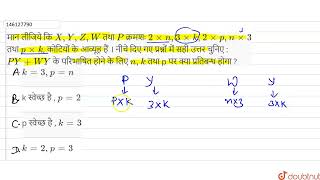 146127790
मान लीजिये कि X, Y, Z, W तथा P क्रमशः 2 × n, 3 × k, 2 × p, n × 3
तथा p × k, कोटियों के आव्यूह हैं । नीचे दिए गए प्रश्नों में सही उत्तर चुनिए :
PY + WY के परिभाषित होने के लिए n, k तथा p पर क्या प्रतिबन्ध होगा ?
A. k = 3, p = n
B. k स्वेच्छ है , p = 2
C. p स्वेच्छ है , k = 3
D. k = 2, p = 3
P Y W Y
P×K 3×K n×3 3×K
doubtnut